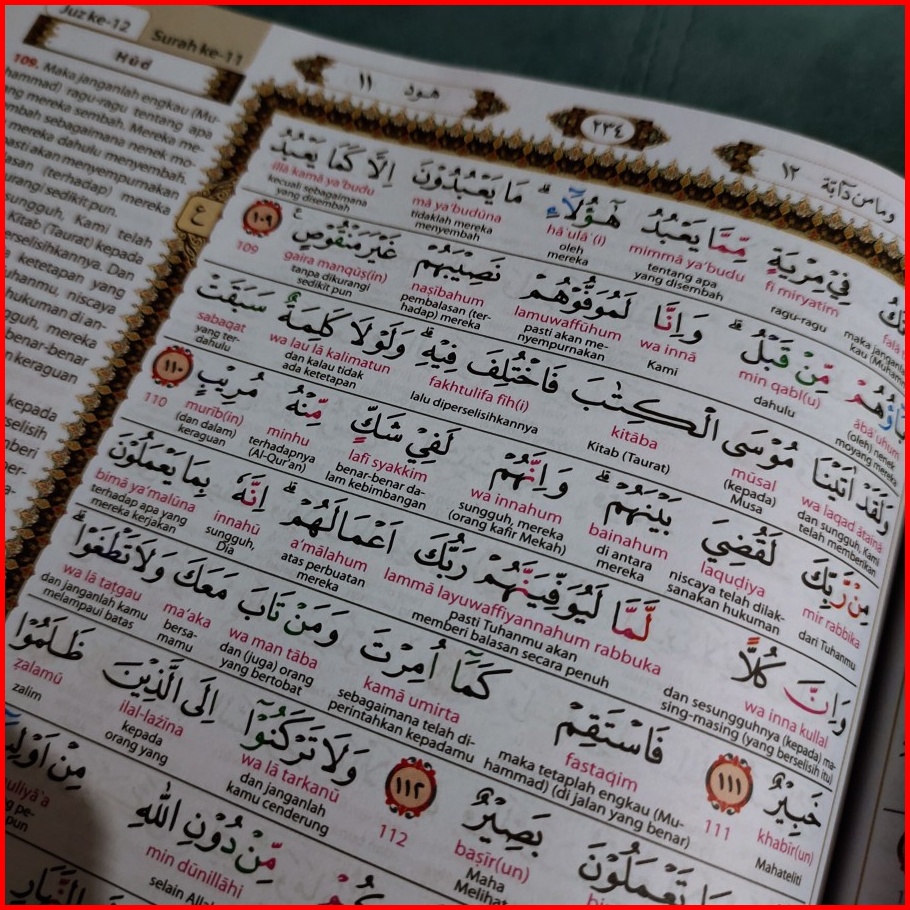 Juz ke-12
Surah ke-11
Hūd
109. Maka janganlah engkau (Mu-
hammad) ragu-ragu tentang apa
mereka sembah. Mereka me-
sebagaimana nenek mo-
mereka dahulu menyembah.
pasti akan menyempurnakan
(terhadap) mereka
sedikit pun.
Kami telah
Kitab (Taurat) kepada
Dan
ketetapan yang
niscaya
hukuman di an-
mereka
benar-benar
keraguan
kepada
وما من دآبة ١٢
٢٣٤
هود ١١
ع
فِيْ مِرْيَةٍ مِّمَّا يَعْبُدُ هٰٓؤُلَاۤءِۗ مَا يَعْبُدُوْنَ اِلَّا كَمَا يَعْبُدُ
fī miryatim mimmā ya'budu hā'ulā'(i) mā ya'budūna illā kamā ya'budu
ragu-ragu tentang apa yang disembah oleh mereka tidaklah mereka menyembah kecuali sebagaimana yang disembah
مِّنْ قَبْلُۗ وَاِنَّا لَمُوَفُّوْهُمْ نَصِيْبَهُمْ غَيْرَ مَنْقُوْصٍ ࣖ ١٠٩
ābā'uhum min qabl(u) wa innā lamuwaffūhum naṣībahum gaira manqūṣ(in) 109
(oleh) nenek moyang mereka dahulu Kami pasti akan me-nyempurnakan pembalasan (ter-hadap) mereka tanpa dikurangi sedikit pun
وَلَقَدْ اٰتَيْنَا مُوْسَى الْكِتٰبَ فَاخْتُلِفَ فِيْهِۗ وَلَوْلَا كَلِمَةٌ سَبَقَتْ
wa laqad ātainā mūsal kitāba fakhtulifa fīh(i) wa lau lā kalimatun sabaqat
dan sungguh, Kami telah memberikan (kepada) Musa Kitab (Taurat) lalu diperselisihkannya dan kalau tidak ada ketetapan yang ter-dahulu
مِنْ رَّبِّكَ لَقُضِيَ بَيْنَهُمْۗ وَاِنَّهُمْ لَفِيْ شَكٍّ مِّنْهُ مُرِيْبٍ ١١٠
mir rabbika laqudiya bainahum wa innahum lafī syakkim minhu murīb(in) 110
dari Tuhanmu niscaya telah dilak-sanakan hukuman di antara mereka sungguh, mereka (orang kafir Mekah) benar-benar da-lam kebimbangan terhadapnya (Al-Qur'an) (dan dalam) keraguan
وَاِنَّ كُلًّا لَّمَّا لَيُوَفِّيَنَّهُمْ رَبُّكَ اَعْمَالَهُمْۗ اِنَّهٗ بِمَا يَعْمَلُوْنَ
wa inna kullal lammā layuwaffiyannahum rabbuka a'mālahum innahū bimā ya'malūna
dan sesungguhnya (kepada) ma-sing-masing (yang berselisih itu) pasti Tuhanmu akan memberi balasan secara penuh atas perbuatan mereka sungguh, Dia terhadap apa yang mereka kerjakan
خَبِيْرٌ ١١١ فَاسْتَقِمْ كَمَآ اُمِرْتَ وَمَنْ تَابَ مَعَكَ وَلَا تَطْغَوْاۗ
khabīr(un) 111 fastaqim kamā umirta wa man tāba ma'aka wa lā taṭgau
Mahateliti maka tetaplah engkau (Mu-hammad) (di jalan yang benar) sebagaimana telah di-perintahkan kepadamu dan (juga) orang yang bertobat bersa-mamu dan janganlah kamu melampaui batas
تَعْمَلُوْنَ بَصِيْرٌ ١١٢ وَلَا تَرْكَنُوْٓا اِلَى الَّذِيْنَ ظَلَمُوْا
baṣīr(un) 112 wa lā tarkanū ilal-lażīna ẓalamū
Maha Melihat dan janganlah kamu cenderung kepada orang yang zalim
مِّنْ دُوْنِ اللّٰهِ مِنْ
min dūnillāhi